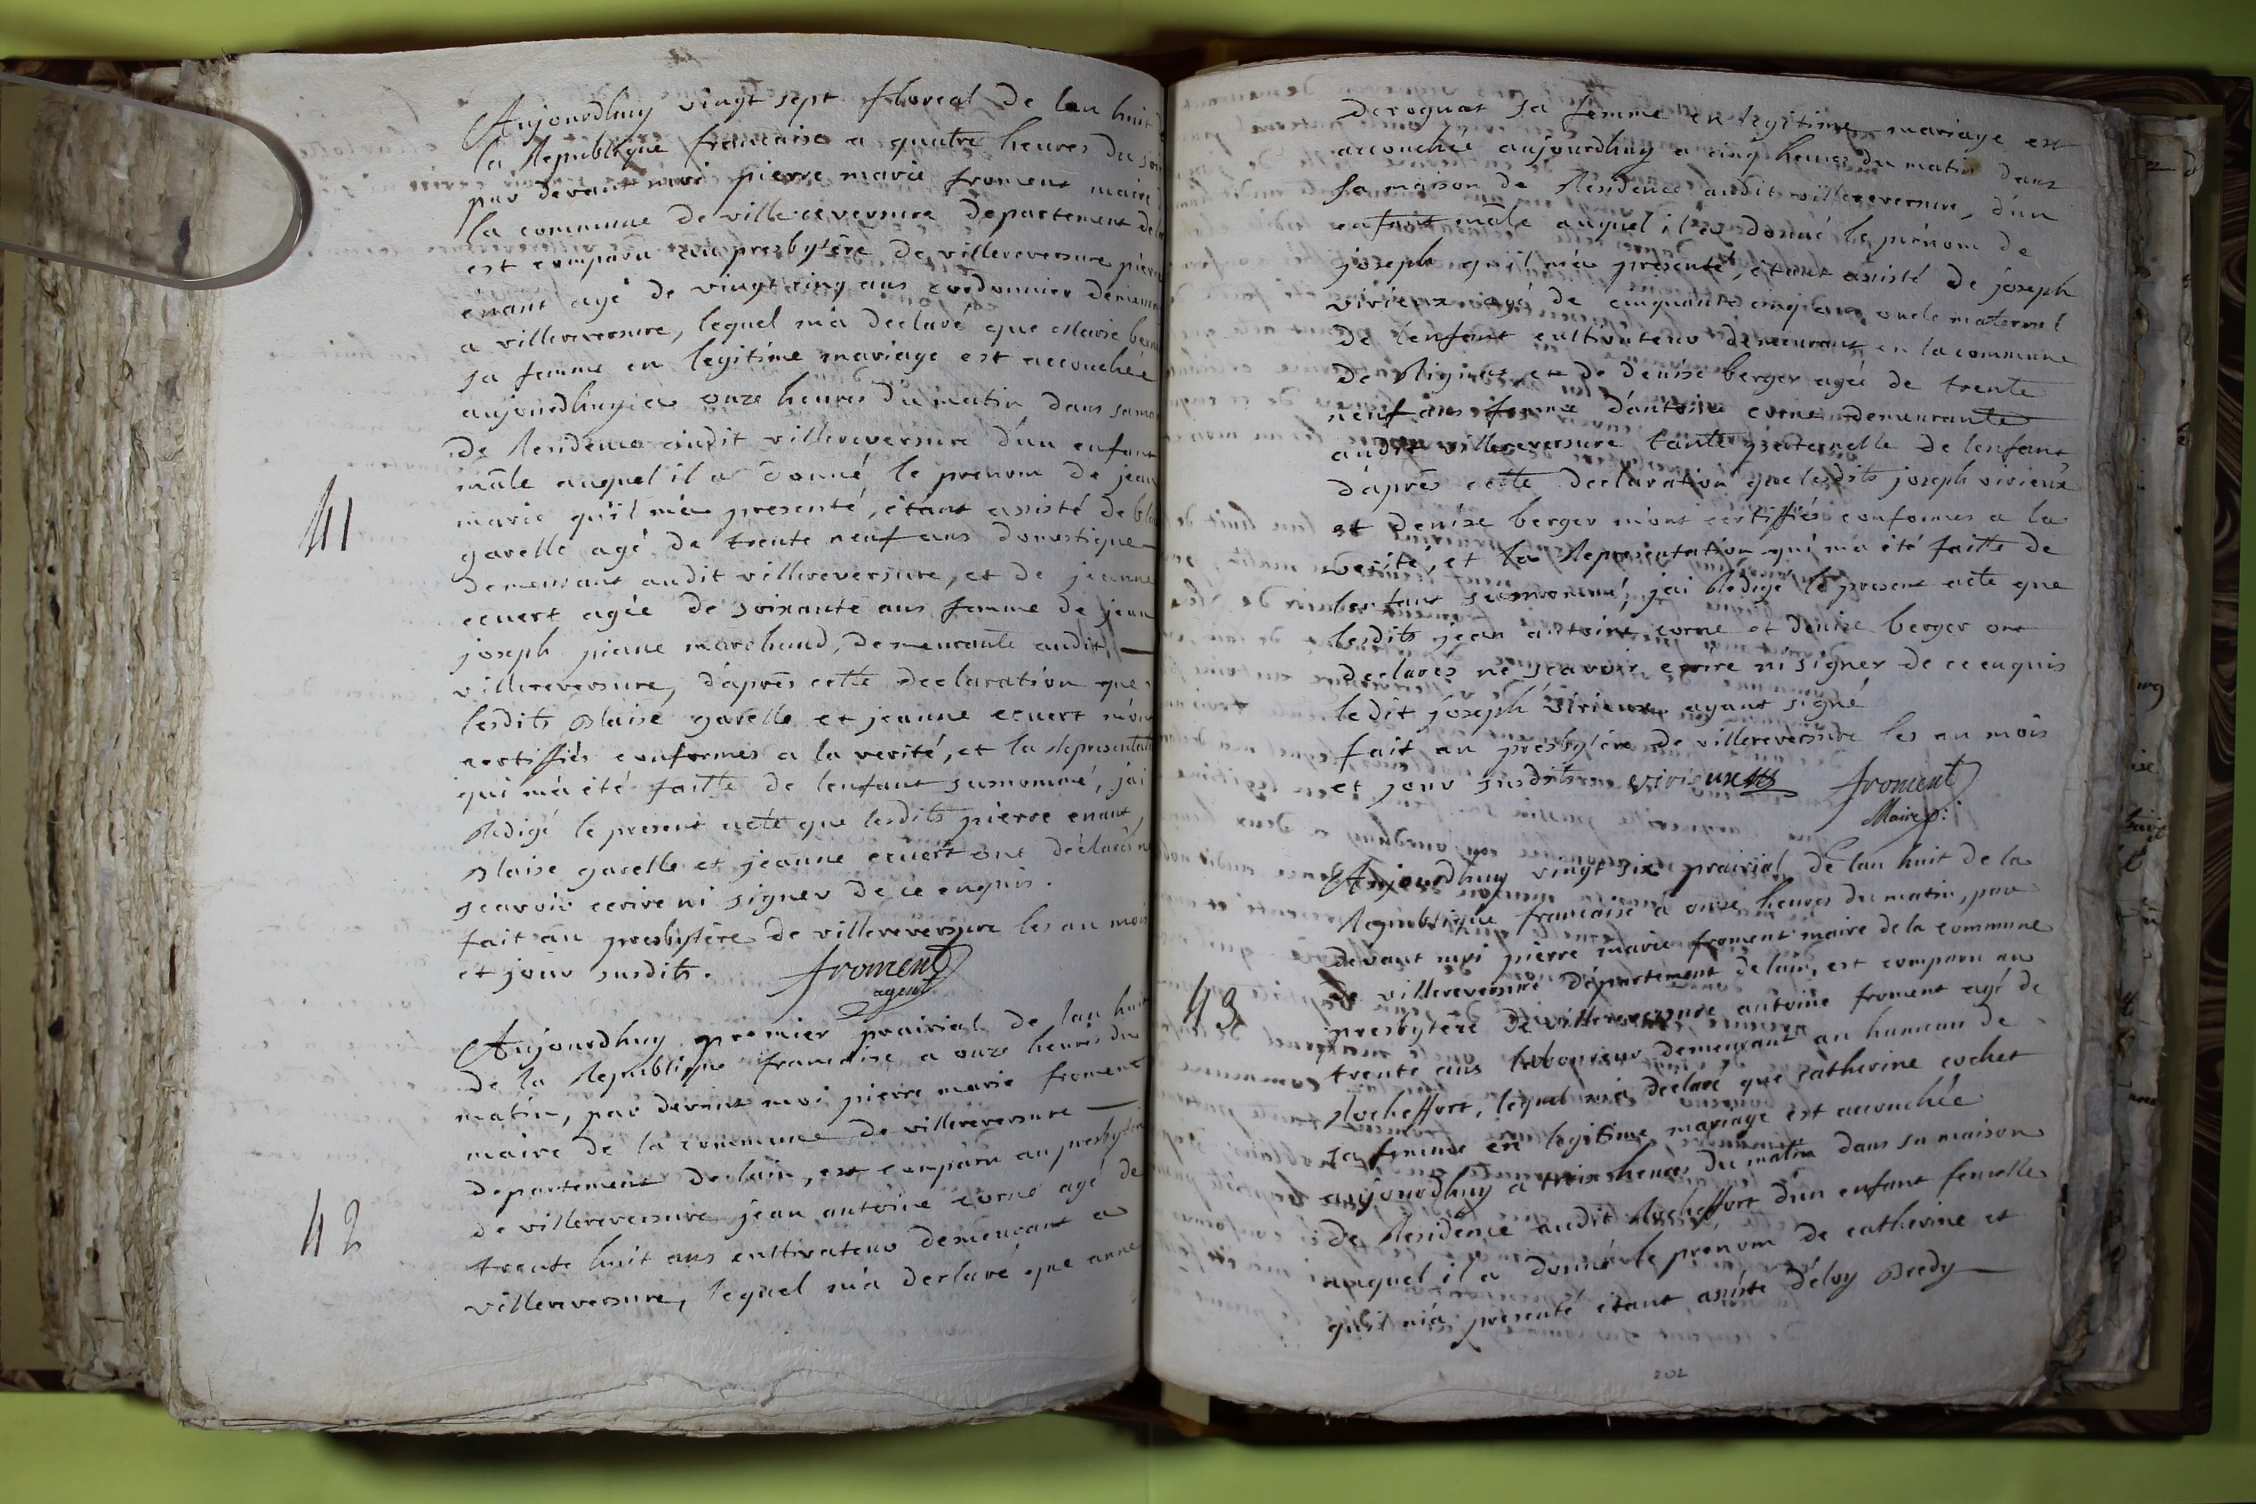 Aujourdhuy vingt sept floreal de lan huit de
la Republique francaise a quatre heures du soir
par devant moi pierre marie froment maire de
la commune de villereversure departement de lain
est comparu au presbytère de villereversure pierre
enant agé de vingt cinq ans cordonnier demeurant
a villereversure, lequel m'a declaré que Marie
sa femme en legitime mariage est accouchée
aujourdhuy a onze heures du matin dans sa maison
de Residence audit villereversure d'un enfant
mâle auquel il a donné le prenom de jean
marie qu'il m'a presenté, étant assisté de blaise
gavelle agé de trente neuf ans domestique
demeurant audit villereversure, et de jeanne
ecuert agée de soixante ans femme de jean
joseph piane marchand, demeurante audit
villereversure, d'après cette declaration que
lesdits Blaise gavelle et jeanne ecuert m'ont
certiffiés conformes a la verité, et la Representation
qui m'a été faitte de lenfant susnommé, j'ai
Rédigé le present acte que lesdits pierre enant,
Blaise gavelle et jeanne ecuert ont déclarés ne
scavoir ecrire ni signer de ce enquis.
fait au presbytère de villereversure les an mois
et jour susdits. froment
agent
41
Aujourdhuy premier prairial de lan huit
de la Republique francaise a onze heures du
matin, par devant moi pierre marie froment
maire de la commune de villereversure
departement de lain, est comparu au presbytère
de villereversure jean antoine corne agé de
trente huit ans cultivateur demeurant a
villereversure, lequel m'a declaré que anne
42
deroguat sa femme en legitime mariage est
accouchée aujourdhuy a cinq heures du matin dans
sa maison de Residence audit villereversure, d'un
enfant mâle auquel il a donné le prénom de
joseph qu'il m'a présenté, étant assisté de joseph
virieux agé de cinquante cinq ans oncle maternel
de l'enfant cultivateur demeurant en la commune
de Rignat, et de denise berger agée de trente
neuf ans femme d'antoine corne demeurante
audit villereversure tante paternelle de lenfant
d'après cette declaration que lesdits joseph virieux
et denise berger m'ont certiffiés conformes a la
verité, et la Representation qui m'a été faitte de
lenfant susnommé, j'ai Redigé le present acte que
lesdits jean antoine corne et denise berger ont
declarés ne scavoir ecrire ni signer de ce enquis
ledit joseph virieux ayant signé
fait au presbytère de villereversure les an mois
et jour susdits virieux froment
Maire p:
Aujourdhuy vingt six prairial de lan huit de la
Republique francaise a onze heures du matin, par
devant moi pierre marie froment maire de la commune
de villereversure département de lain, est comparu au
presbytère de villereversure antoine froment agé de
trente ans laboureur demeurant au hameau de
Rocheffort, lequel m'a declaré que catherine cochet
sa femme en legitime mariage est accouchée
aujourdhuy a trois heures du matin dans sa maison
de Residence audit Rocheffort d'un enfant femelle
auquel il a donné le prenom de catherine et
qu'il m'a presenté étant assisté d'éloy Dredy
43
202